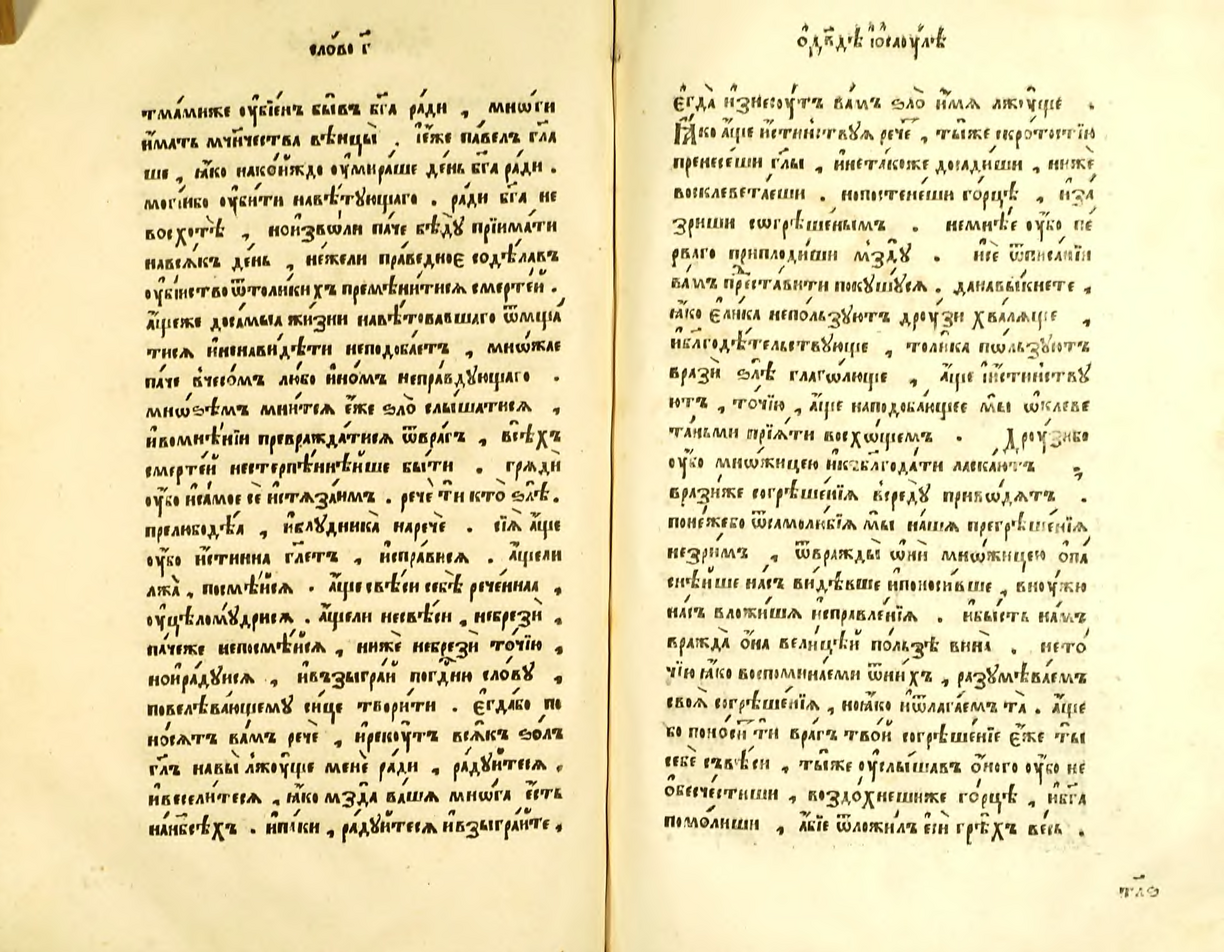 сло́во г҃
тма́миже ᲂу҆бїе́нъ бы́въ бг҃а ра́ди , мнѡ́ги
и҆́мать мч҃ничества вѣнцы̀ . і҆е́же па́велъ гл҃а
ше , ꙗ҆́ко нако́йждо ᲂу҆мира́ше де́нь бг҃а ра́ди .
могі́ибо ᲂу҆би́ти навѣ́тꙋющаго . ра́ди бг҃а не
восхотѣ̀ , нои҆зво́ли па́че бѣдꙋ̀ прїима́ти
навсѧ́къ де́нь , не́жели пра́ведное содѣ́лавъ
ᲂу҆бі́иство ѿтоли́кихъ премѣни́тисѧ сме́ртей .
а҆́щеже доса́мыѧ жи́зни навѣтова́вшаго ѿмща́
тисѧ и҆ненави́дѣти неподоба́етъ , мно́жае
па́че вче́сомъ лю́бо и҆но́мъ непра́вдꙋющаго .
мнѡ́ѕѣмъ мни́тсѧ е҆́же ѕло̀ слы́шатисѧ ,
и҆вомнѣ́нїи превражда́тисѧ ѿвра́гъ , всѣ́хъ
сме́ртей нестерпѣ́ннѣйше бы́ти . грѧдѝ
ᲂу҆́бо и҆са́мое сѐ и҆стѧза́имъ . речѐ тѝ кто̀ ѕлѣ̀ .
прелюбодѣ́ѧ , и҆блꙋ́дника наречѐ . сїѧ̀ а҆́ще
ᲂу҆́бо и҆́стинна гл҃етъ , и҆спра́висѧ . а҆́щели
лжа̀ , посмѣ́йсѧ . а҆́ще свѣ́си себѣ̀ рече́ннаѧ ,
ᲂу҆цѣломꙋ́дрисѧ . а҆́щели несвѣ́си , небрезѝ ,
па́чеже непосмѣ́йсѧ , ни́же небрезѝ то́чїю ,
нои҆ра́дꙋисѧ , и҆възыгра́й погдн҃ю сло́вꙋ ,
повелѣва́ющемꙋ си́це твори́ти . е҆гда́бо по
но́сѧтъ ва́мъ речѐ , и҆рекꙋ́тъ всѧ́къ ѕо́лъ
гл҃ъ навы̀ лжꙋ́ще менѐ ра́ди , ра́дꙋйтесѧ ,
и҆весели́тесѧ , ꙗ҆́ко мзда̀ ва́ша мно́га є҆́сть
нан҃бсѣ́хъ . и҆па́ки , ра́дꙋйтесѧ и҆взыгра́йте ,
ѻ҆дв҃дѣ і҆ѻсаᲂу́лѣ
е҆гда̀ и҆знесᲂу́тъ ва́мъ ѕло̀ и҆́мѧ лжꙋ́ще .
Ꙗ҆́ко а҆́ще и҆́стинствꙋѧ речѐ , ты́же скро́тостїю
пренесе́ши гл҃ы , и҆нета́коже досади́ши , ниже
восклеве́таеши . нопостене́ши го́рцѣ , и҆за
зри́ши согрѣше́нымъ . неме́нѣе ᲂу҆́бо пе́
рваго приплоди́ши мздꙋ̀ . и҆сѐ ѿписа́нїй
ва́мъ преста́вити покꙋшꙋ́сѧ . данавы́кнете ,
ꙗ҆́ко є҆ли́ка непо́льзꙋютъ дрᲂу́зи хва́лѧще ,
и҆благодѣ́тельствꙋюще , толи́ка по́льзꙋютъ
вразѝ ѕлѣ̀ глаго́люще , а҆́ще и҆́стинствꙋ
ютъ , то́чїю , а҆́ще наподоба́ющее мы̀ ѡ҆клеве
та́ньми прїѧ́ти восхо́щемъ . Дрᲂу́зибо
ᲂу҆́бо мно́жицею и҆кблагода́ти ласка́ютъ ,
врази́же согрѣше́нїѧ вредꙋ̀ приво́дѧтъ .
поне́жебо ѿсамолю́бїѧ мы̀ на́ша прегрѣше́нїѧ
незри́мъ , ѿвражды̀ ѻ҆нѝ мно́жицею ѻ҆па
снѣ́йше на́съ ви́дѣвше и҆поноси́вше , вноу́жꙋ
на́съ вложи́шѧ и҆справле́нїѧ . и҆бы́сть на́мъ
вражда̀ ѻ҆на̀ вели́цѣй по́льзѣ вина̀ . нето́
чїю ꙗ҆́ко воспомина́еми ѿни́хъ , разꙋмѣва́емъ
своѧ̀ согрѣше́нїѧ , ноꙗ҆́ко и҆ѿлага́емъ та̀ . а҆́ще
бо поно́ситъ ти вра́гъ тво́й согрѣше́нїе е҆́же ты̀
себѐ съвѣ́си , ты́же ᲂу҆слы́шавъ ѻ҆́ного ᲂу҆́бо не
ѻ҆безчести́ши , воздо́хнешиже го́рцѣ , и҆бг҃а
помо́лиши , а҆́бїе ѿложи́лъ є҆сѝ грѣ́хъ ве́сь .